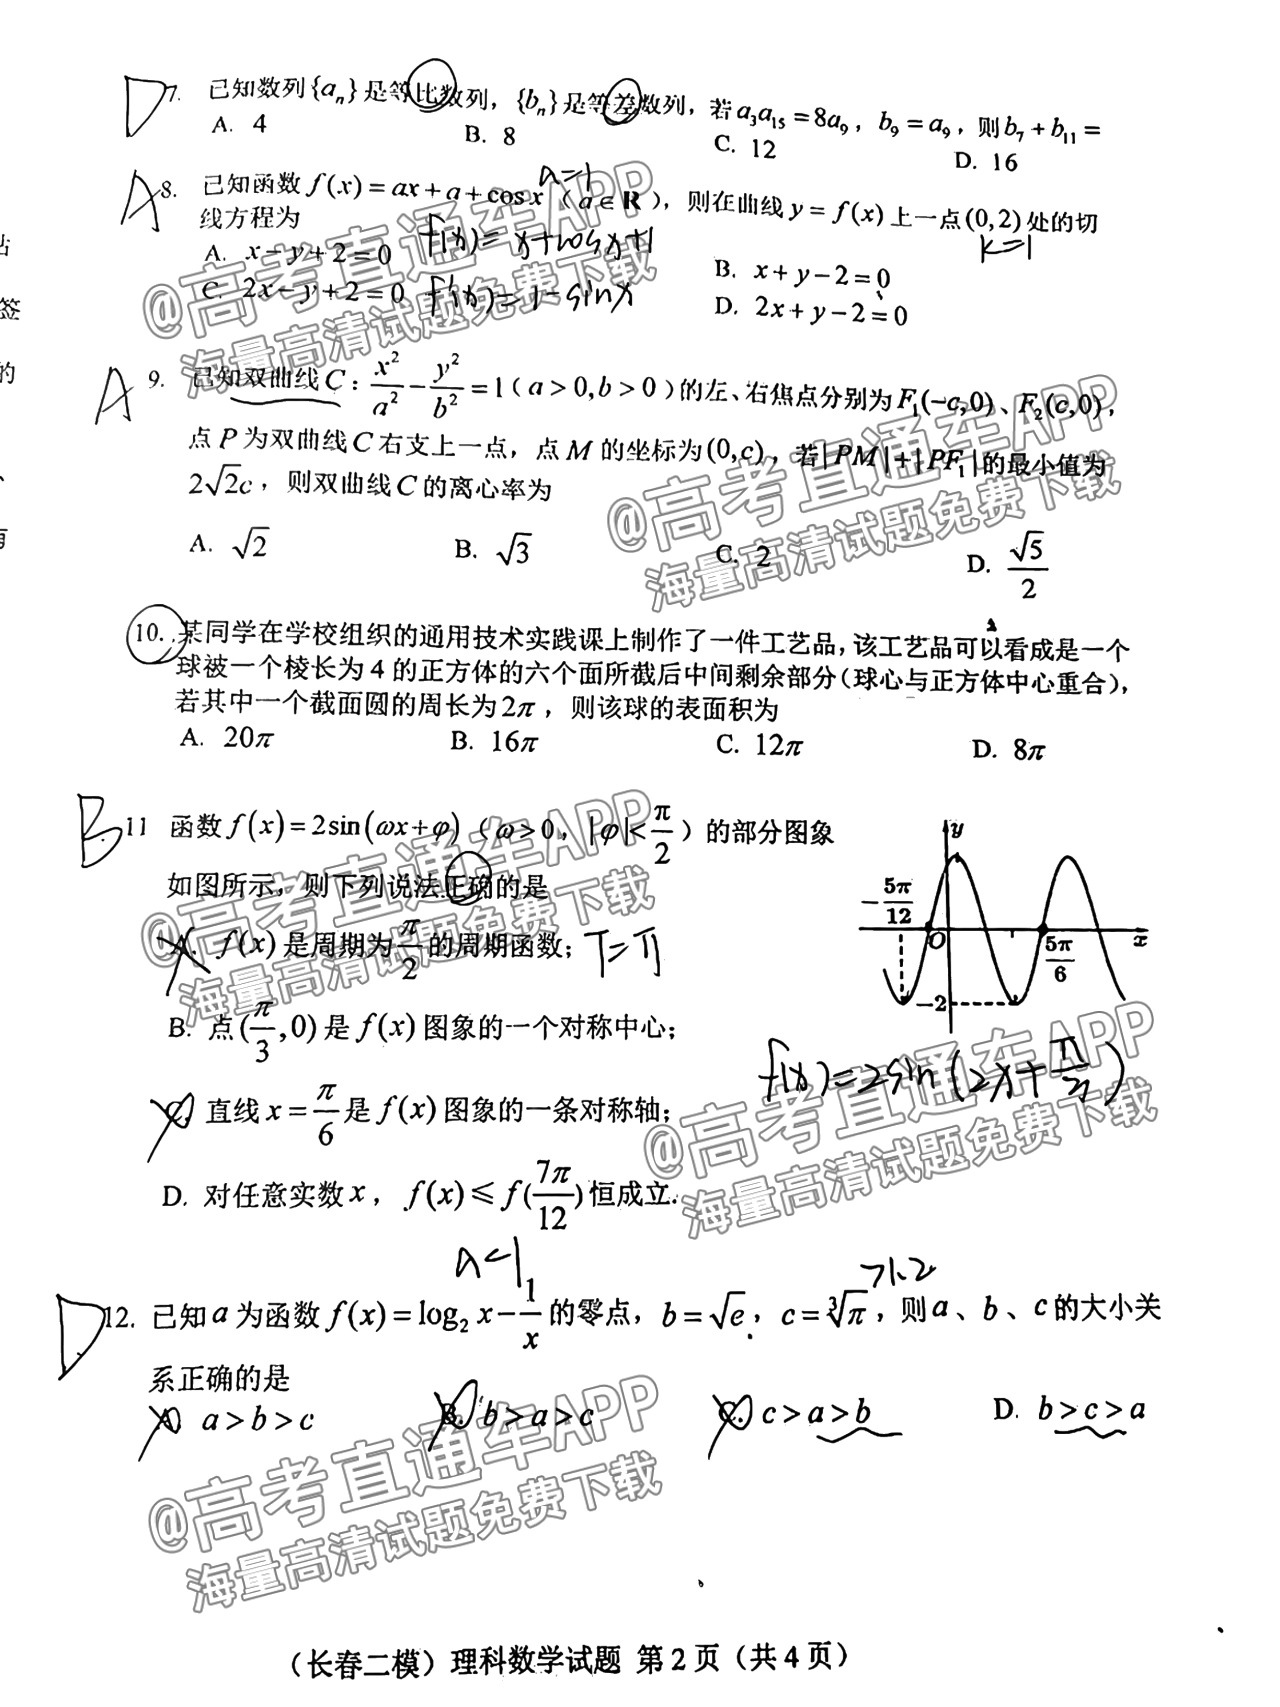 D 7. 已知数列{aₙ}是等比数列，{bₙ}是等差数列，若a₃a₁₅=8a₉，b₉=a₉，则b₇+b₁₁=
A. 4 B. 8 C. 12 D. 16
a=1
A 8. 已知函数f(x)=ax+a+cosx（a∈R），则在曲线y=f(x)上一点(0,2)处的切
线方程为 f(x)=x+cosx+1 k=1
A. x-y+2=0 B. x+y-2=0
C. 2x-y+2=0 f'(x)=1-sinx D. 2x+y-2=0
@高考直通车APP
海量高清试题免费下载
站
签
的
、
A 9. 已知双曲线C：x²/a²-y²/b²=1（a>0,b>0）的左、右焦点分别为F₁(-c,0)、F₂(c,0)，
点P为双曲线C右支上一点，点M的坐标为(0,c)，若|PM|+|PF₁|的最小值为
2√2c，则双曲线C的离心率为
A. √2 B. √3 C. 2 D. √5/2
@高考直通车APP
海量高清试题免费下载
10. 某同学在学校组织的通用技术实践课上制作了一件工艺品，该工艺品可以看成是一个
球被一个棱长为4的正方体的六个面所截后中间剩余部分（球心与正方体中心重合），
若其中一个截面圆的周长为2π，则该球的表面积为
A. 20π B. 16π C. 12π D. 8π
B 11 函数f(x)=2sin(ωx+φ)（ω>0，|φ|<π/2）的部分图象
如图所示，则下列说法正确的是
A. f(x)是周期为π/2的周期函数； T=π
B. 点(π/3,0)是f(x)图象的一个对称中心；
C. 直线x=π/6是f(x)图象的一条对称轴；
D. 对任意实数x，f(x)≤f(7π/12)恒成立.
y
-5π/12
O 5π/6 x
-2
f(x)=2sin(2x+π/3)
@高考直通车APP
海量高清试题免费下载
@高考直通车APP
海量高清试题免费下载
a<1 >1.2
D 12. 已知a为函数f(x)=log₂x-1/x的零点，b=√e，c=∛π，则a、b、c的大小关
系正确的是
A. a>b>c B. b>a>c C. c>a>b D. b>c>a
@高考直通车APP
海量高清试题免费下载
（长春二模）理科数学试题 第2页（共4页）